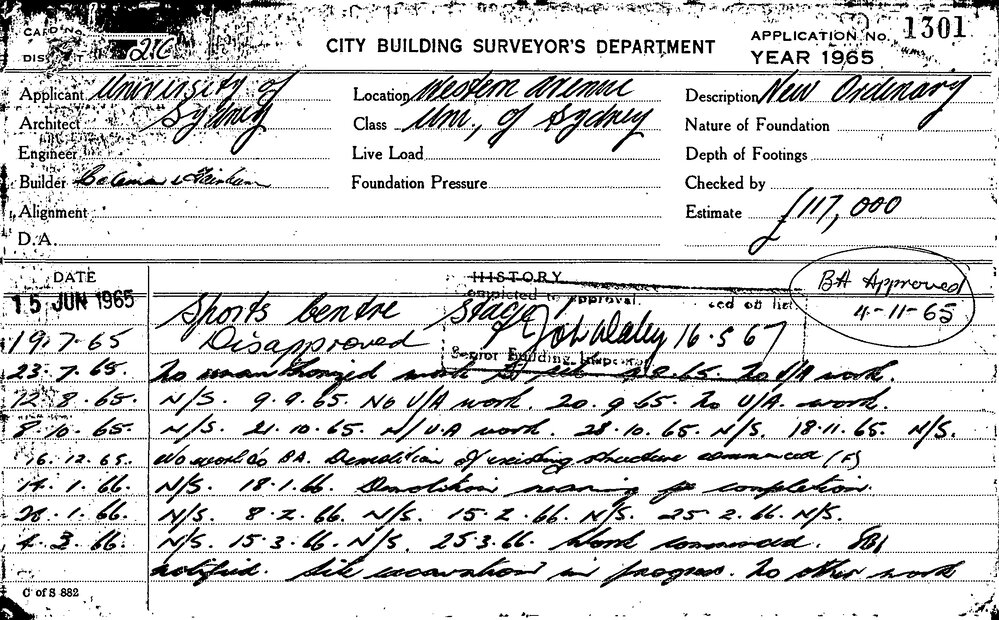 CARD No.
DISTRICT 216
CITY BUILDING SURVEYOR'S DEPARTMENT
APPLICATION No. 1301
YEAR 1965
Applicant University of
Sydney
Architect
Engineer
Builder
Alignment
D.A.
Location Western Avenue
Class Uni., of Sydney
Live Load
Foundation Pressure
Description New Ordinary
Nature of Foundation
Depth of Footings
Checked by
Estimate £117,000
DATE
HISTORY
BA Approved
4-11-65
15 JUN 1965 Sports Centre Stage
completed to approval. list
16.5.67
Senior Building Inspector
19.7.65 Disapproved
23.7.65. No unauthorized work 65. No U/A work.
12.8.65. N/S. 9.9.65. No U/A work. 20.9.65. No U/A. work.
8.10.65. N/S. 21.10.65. N/U.A work. 28.10.65. N/S. 18.11.65. N/S.
16.12.65. BA. Demolition of existing structure commenced (F)
14.1.66. N/S. 18.1.66. Demolition nearing completion.
28.1.66. N/S. 8.2.66. N/S. 15.2.66. N/S. 25.2.66. N/S.
4.3.66. N/S. 15.3.66. N/S. 25.3.66. Work commenced.
notified. Site excavation in progress. No other work
C of S 882